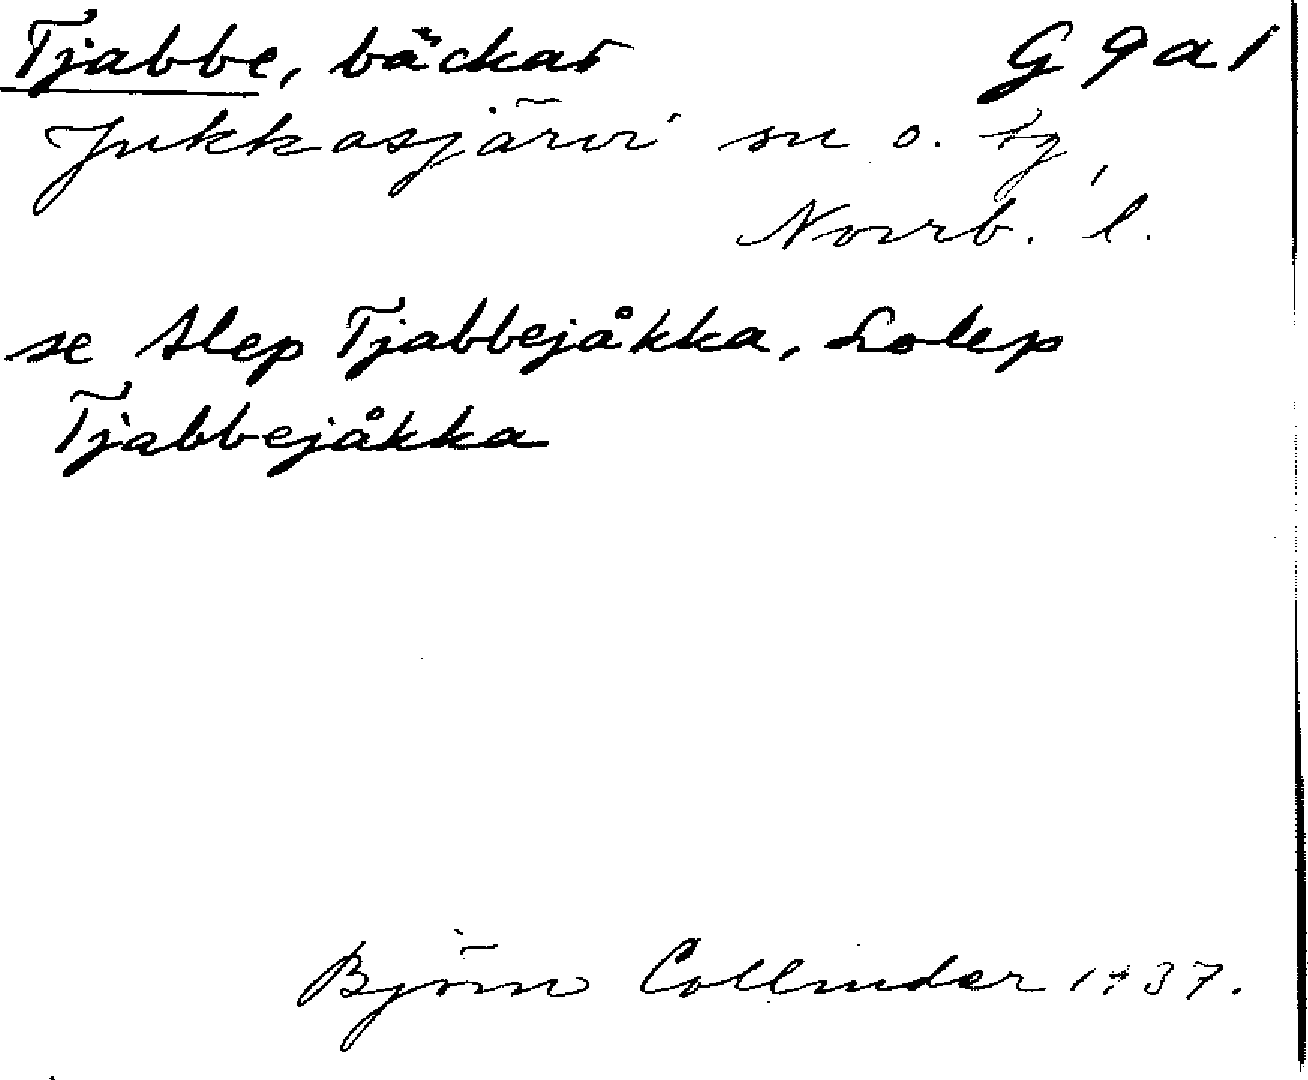 Tjabbe, bäckar G 9 a 1
Jukkasjärvi sn o. tg,
Norrb. l.
se Alep Tjabbejåkka, Lolep
Tjabbejåkka
Björn Collinder 1937.